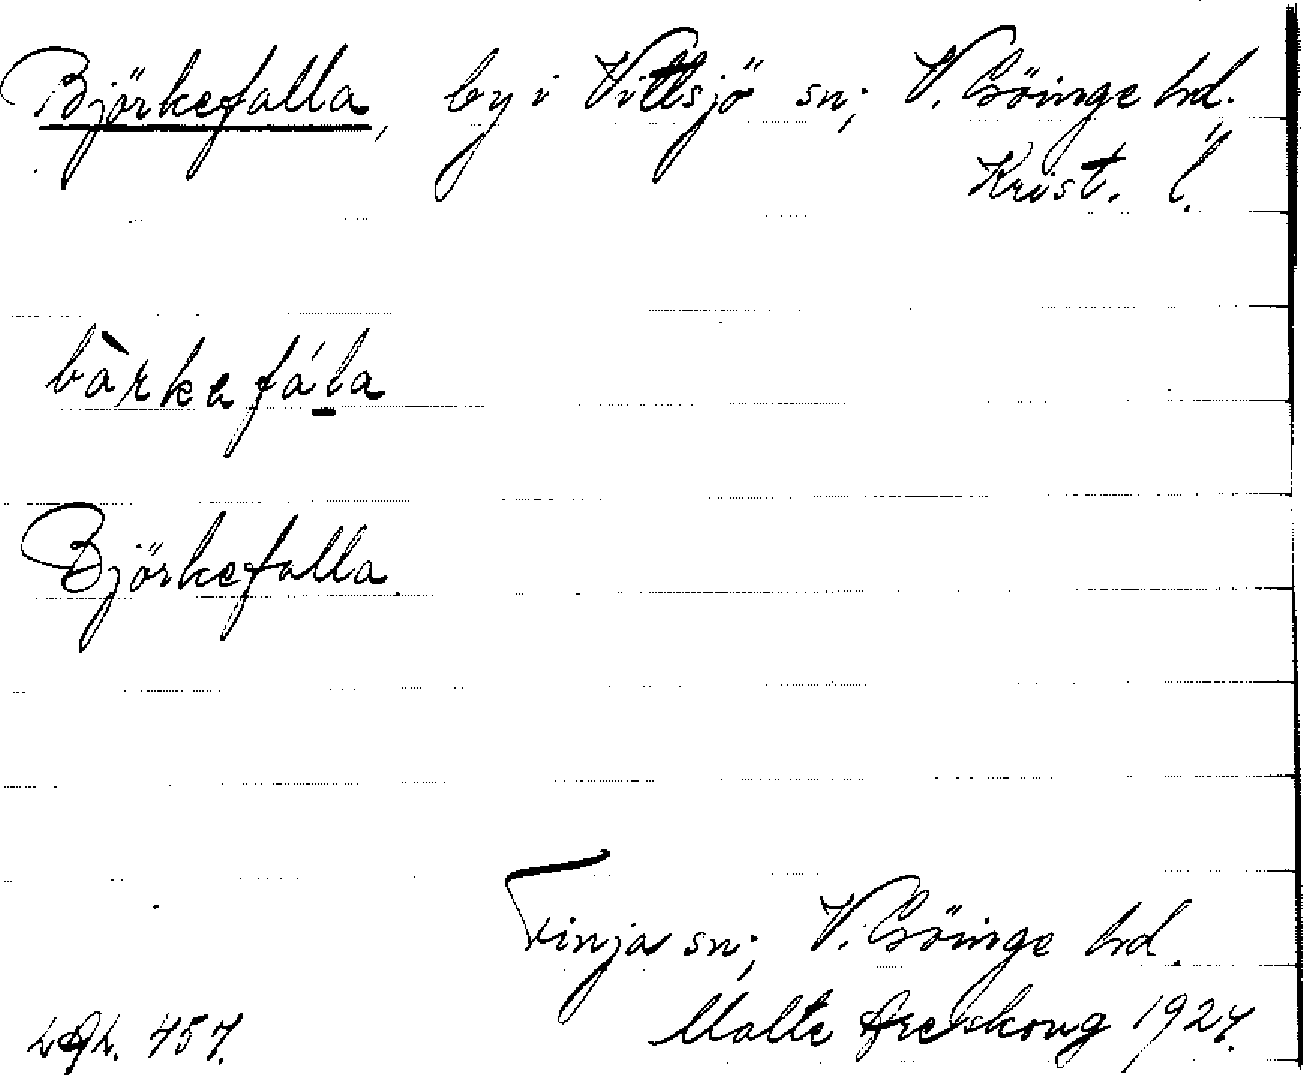 Björkefalla, by i Vittsjö sn; V. Göinge hd.
Krist. l.
bàrkafála
Björkefalla.
Finja sn; V. Göinge hd.
Malte Areskoug 1924.